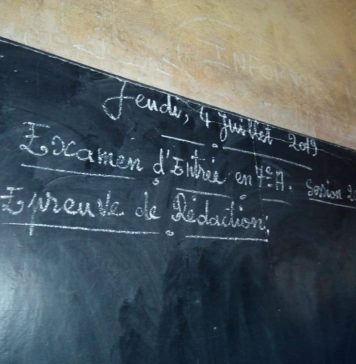 Jeudi, 4 Juillet 2019
Examen d'Entrée en 7e A. Session 20
Epreuve de Rédaction: